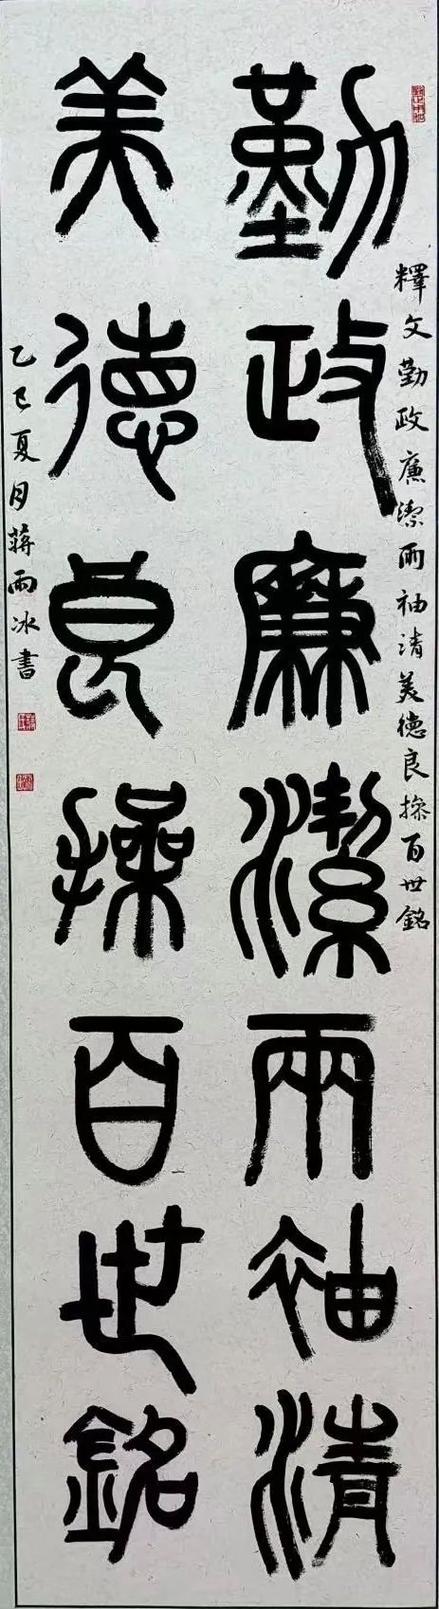 釋文勤政廉潔兩袖清美德良操百世銘
勤政廉潔兩袖清
美德良操百世銘
乙巳夏月蔣雨冰書